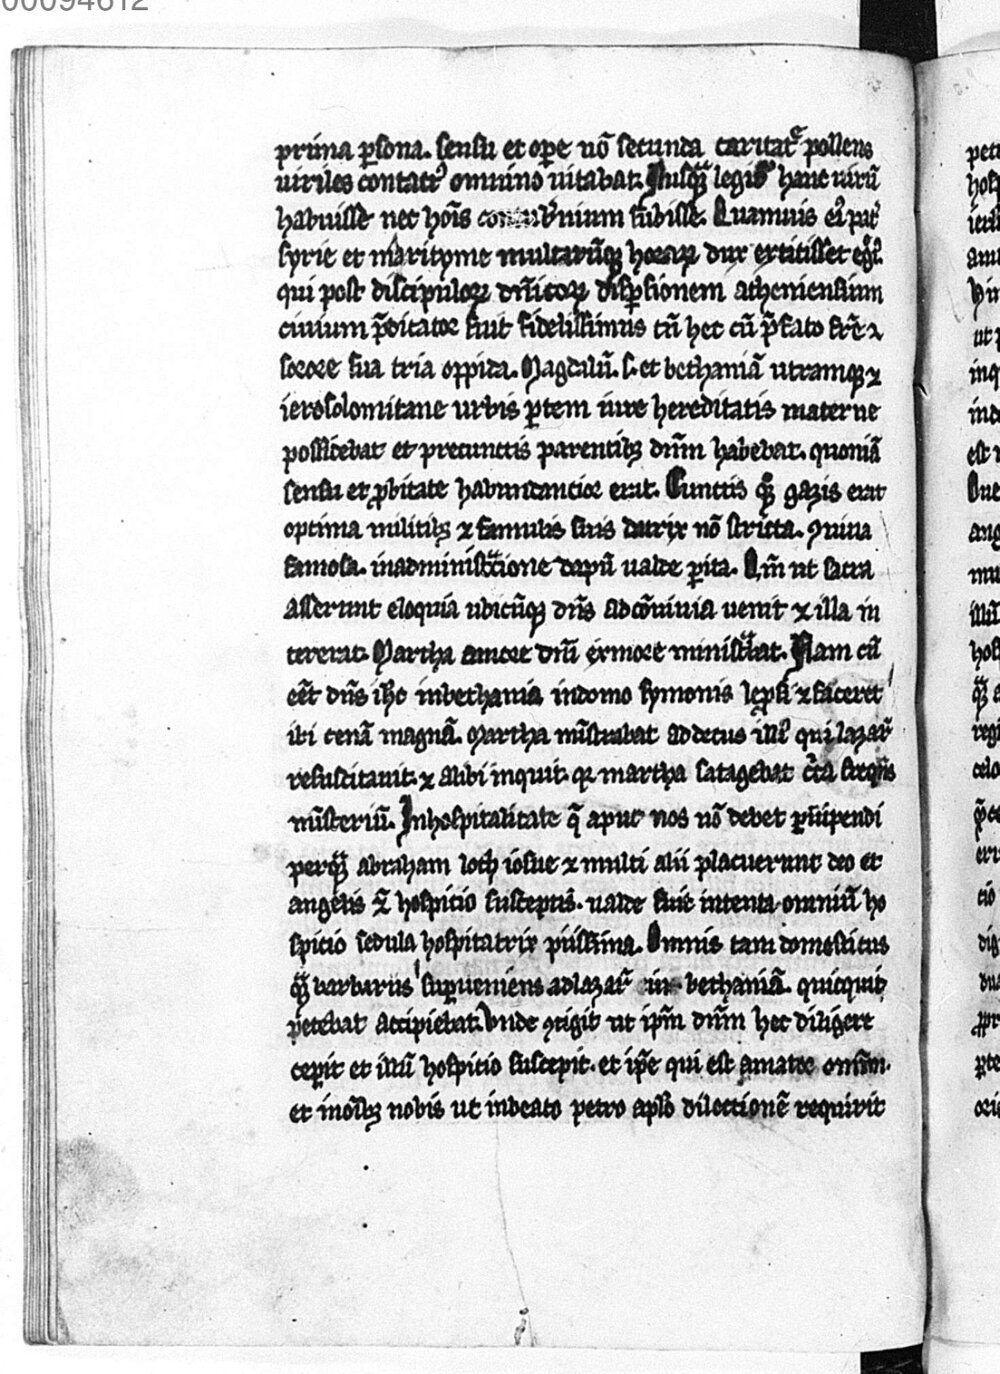 00094612
prima ꝑsona. sensu et oꝑe nō secunda caritatͤ pollens
uiriles contactꝰ omnino uitabat. Nusqͣ legit᷑ hanc uirū
habuisse nec hoīs contubnium subisse. Quamuis eiꝰ pat᷑
syrie et marityme multarūqꝫ horaꝝ dux extitisset eg᷑.
qui post discipuloꝝ dn̄icoꝝ dispsionem atheniensium
ciuium p̄dicator fuit fidelissimus tn̄ hec cū p̄fato fr̄e ⁊
sorore sua tria oppida. Magdalū. s. et bethaniā utramqꝫ ⁊
ierosolomitane urbis ꝑtem iure hereditatis materne
possidebat et precunctis parentibꝫ dn̄m habebat. quoniā
sensu et ꝓbitate habundancior erat. Cunctis qͣꝫ gazis erat
optima militibꝫ ⁊ famulis suis datrix nō stricta. ꝯuiua
famosa. inadministͣcione dapū ualde ꝑita. Qm̄ ut sacra
asserunt eloquia ubicūqꝫ dn̄s adcōuiuia uenit ⁊ illa in
tererat. Martha amore dn̄i exmore ministͣbat. Nam cū
eēt dn̄s ihc inbethania indomo symonis leprosi ⁊ faceret
ibi cenā magnā. Martha mīstrabat addecus illiꝰ qui lazarū
resuscitauit. ⁊ alibi inquit. qꝛ martha satagebat cͨca freqn̄s
mīsteriū. Inhospitalitate q̄ aput nos nō debet ꝑuipendi
perqͣꝫ abraham loth iosue ⁊ multi alii placuerunt deo et
angelis hospicio susceptis. ualde fuit intenta omniū ho
spicio sedula hospitatrix piissima. Omnis tam domesticus
qͣꝫ barbarus suꝑueniens adlazarū in bethaniā. quicquid
petebat accipiebat. Vnde ꝯtigit ut ip̄m dn̄m hec diligere
cepit et illū hospicio suscepit. et ip̄e qui est amator omīm.
et inoībꝫ nobis ut inbeato petro aplo dilectionē requirit